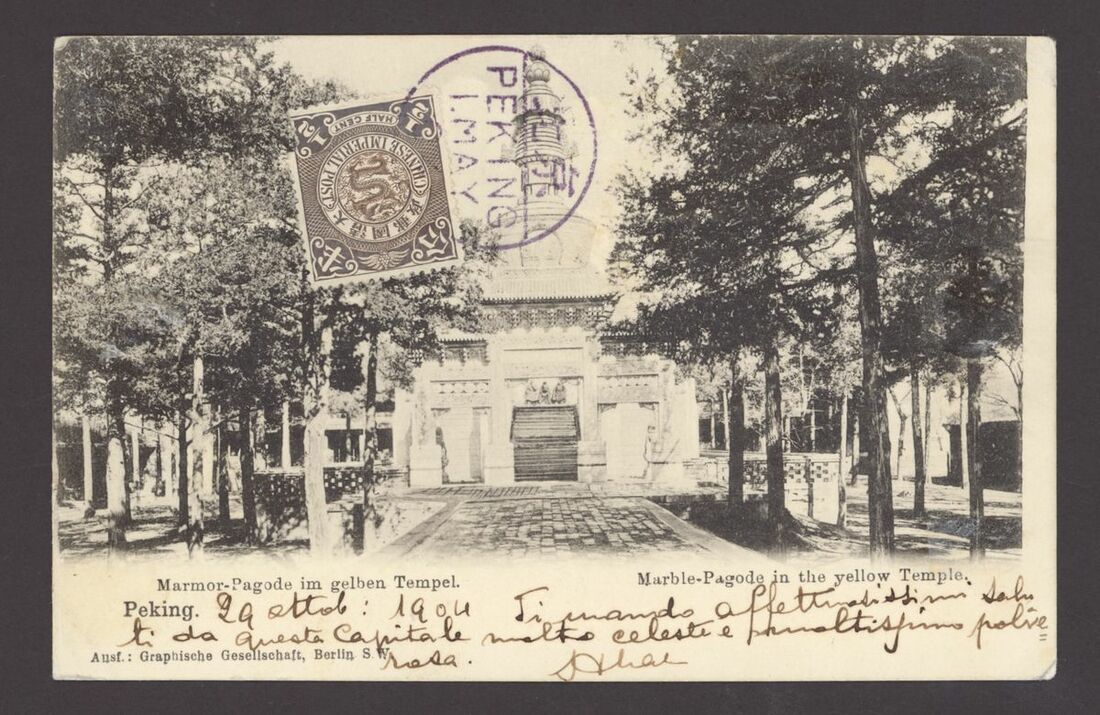 PEKING
1.MAY
北京
CHINESE IMPERIAL POST
大清國郵政
HALF CENT
1/2 1/2
半 分
Marmor-Pagode im gelben Tempel.
Marble-Pagode in the yellow Temple.
Peking. 29 ottob: 1904 Ti mando affettuosissimi salu
ti da questa Capitale molto celeste e polve=
rosa.
Ausf.: Graphische Gesellschaft, Berlin S.W.